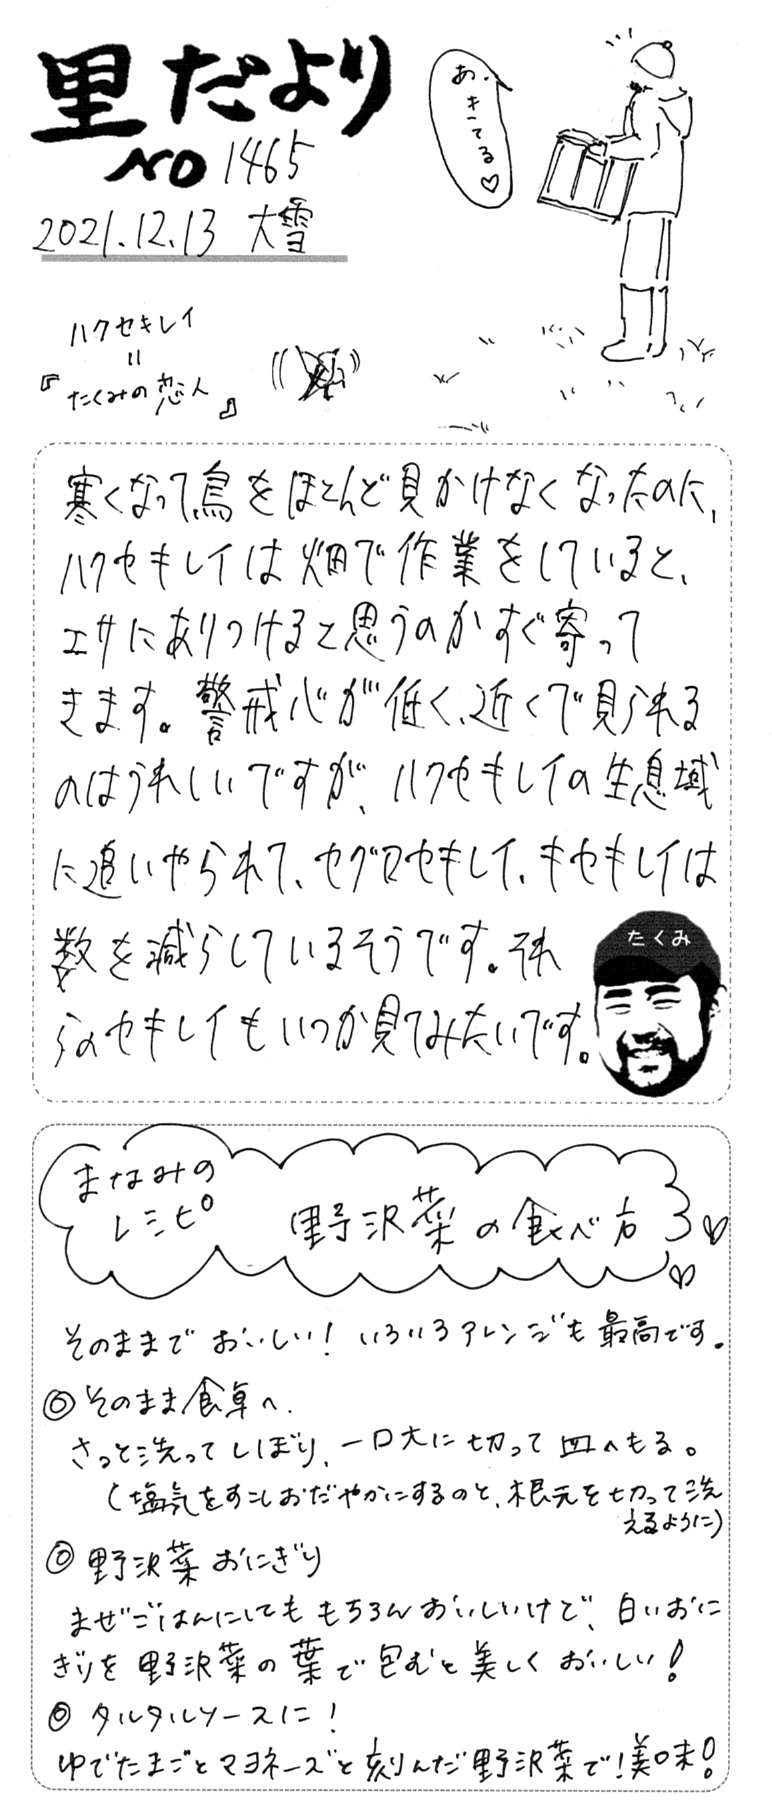 里だより
NO 1465
2021.12.13 大雪
あ、きてる♡
ハクセキレイ
=
『たくみの恋人』
寒くなって、鳥をほとんど見かけなくなったのに、
ハクセキレイは畑で作業をしていると、
エサにありつけると思うのかすぐ寄って
きます。警戒心が低く、近くで見られる
のはうれしいですが、ハクセキレイの生息域
に追いやられて、セグロセキレイ、キセキレイは
数を減らしているそうです。それ
らのセキレイもいつか見てみたいです。
たくみ
まなみの
レシピ
野沢菜の食べ方
そのままでおいしい!いろいろアレンジも最高です。
◎そのまま食卓へ.
さっと洗ってしぼり、一口大に切って皿へもる。
(塩気をすこしおだやかにするのと、根元を切って洗
えるように)
◎野沢菜おにぎり
まぜごはんにしてももちろんおいしいけど、白いおに
ぎりを野沢菜の葉で包むと美しくおいしい!
◎タルタルソースに!
ゆでたまごとマヨネーズと刻んだ野沢菜で!美味!